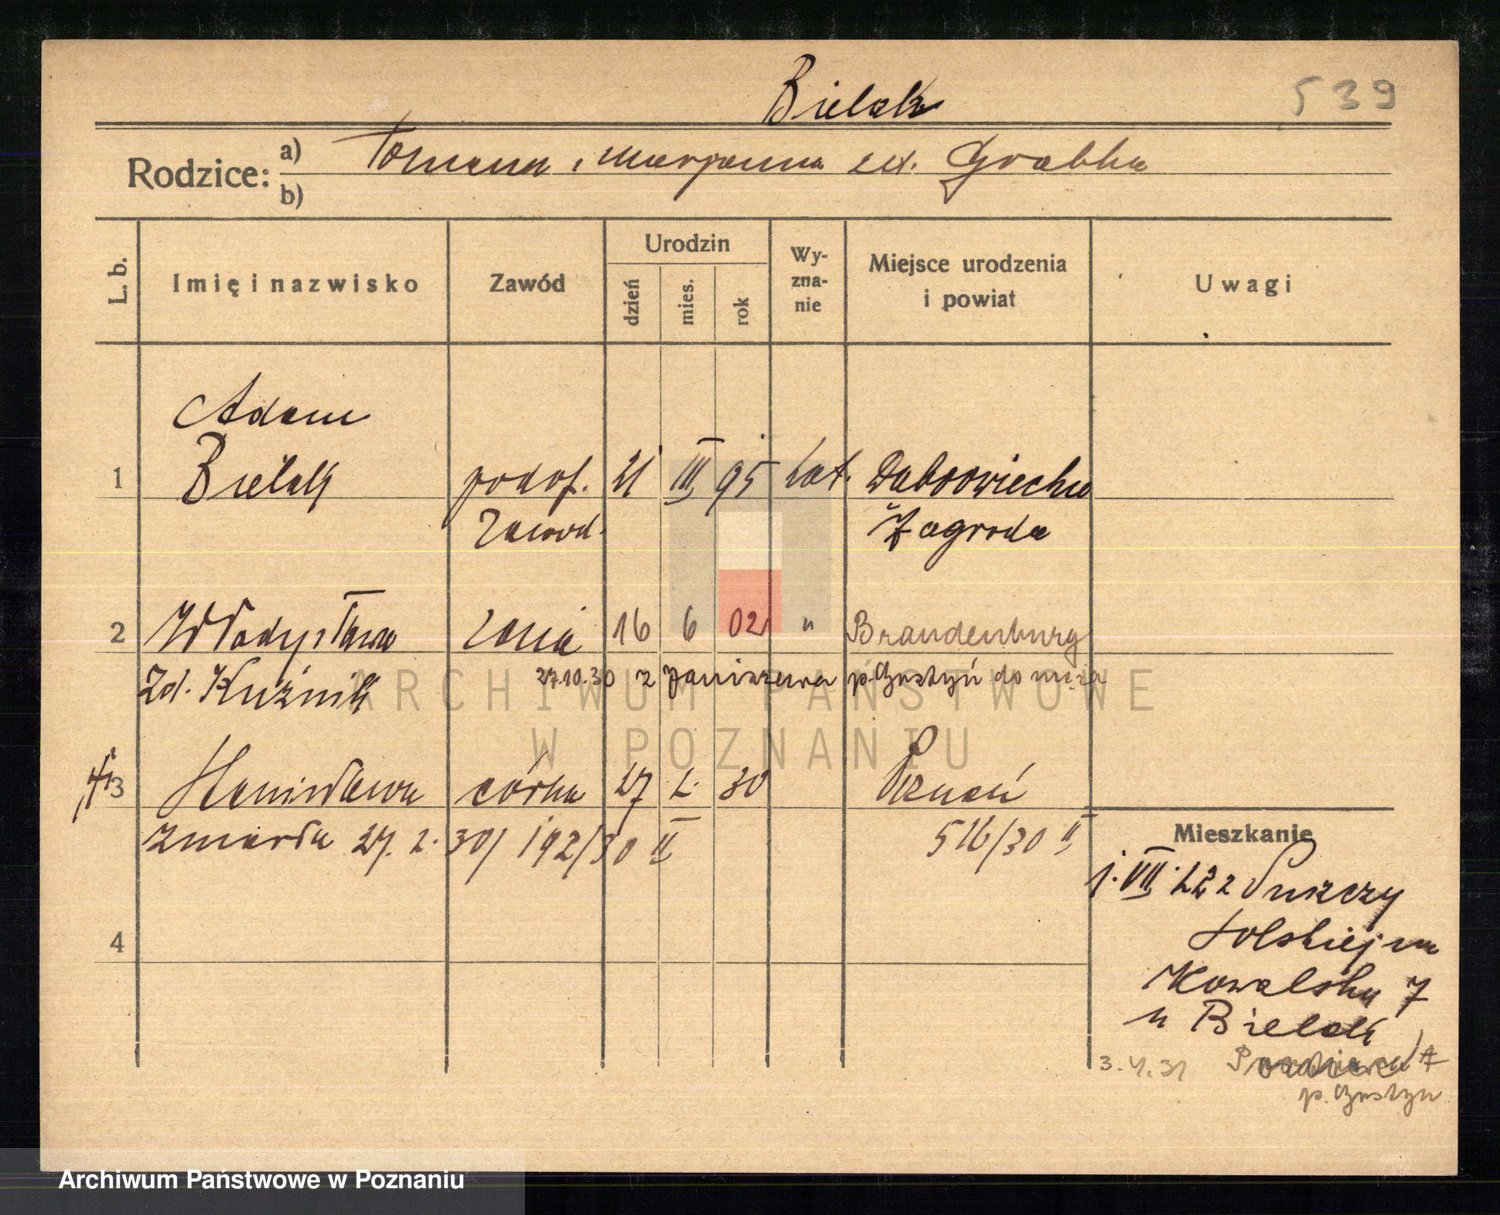 Bielak
539
Rodzice: a) Tomasza i Marjanna zd. Grabka
b)
L. b. Imię i nazwisko Zawód Urodzin dzień mies. rok Wy-zna-nie Miejsce urodzenia i powiat Uwagi
Adam
1 Bielak podof. 21 III 95 kat. Dąbrowiecka
zawod. Zagroda
2 Władysława żona 16 6 02 " Brandenburg
zd. Kuźnik 27.10.30 z Janiszewa p. Gostyń do męża
3 Stanisława córka 27 2. 30 Poznań
zmarła 27. 2. 30/ 192/30 II 516/30 II
Mieszkanie
1. VII. 22 z Puszczy
Solskiej na
4
Kowalska 7
u Bielak
3.4.31
p. Gostyń
ARCHIWUM PAŃSTWOWE
W POZNANIU
Archiwum Państwowe w Poznaniu